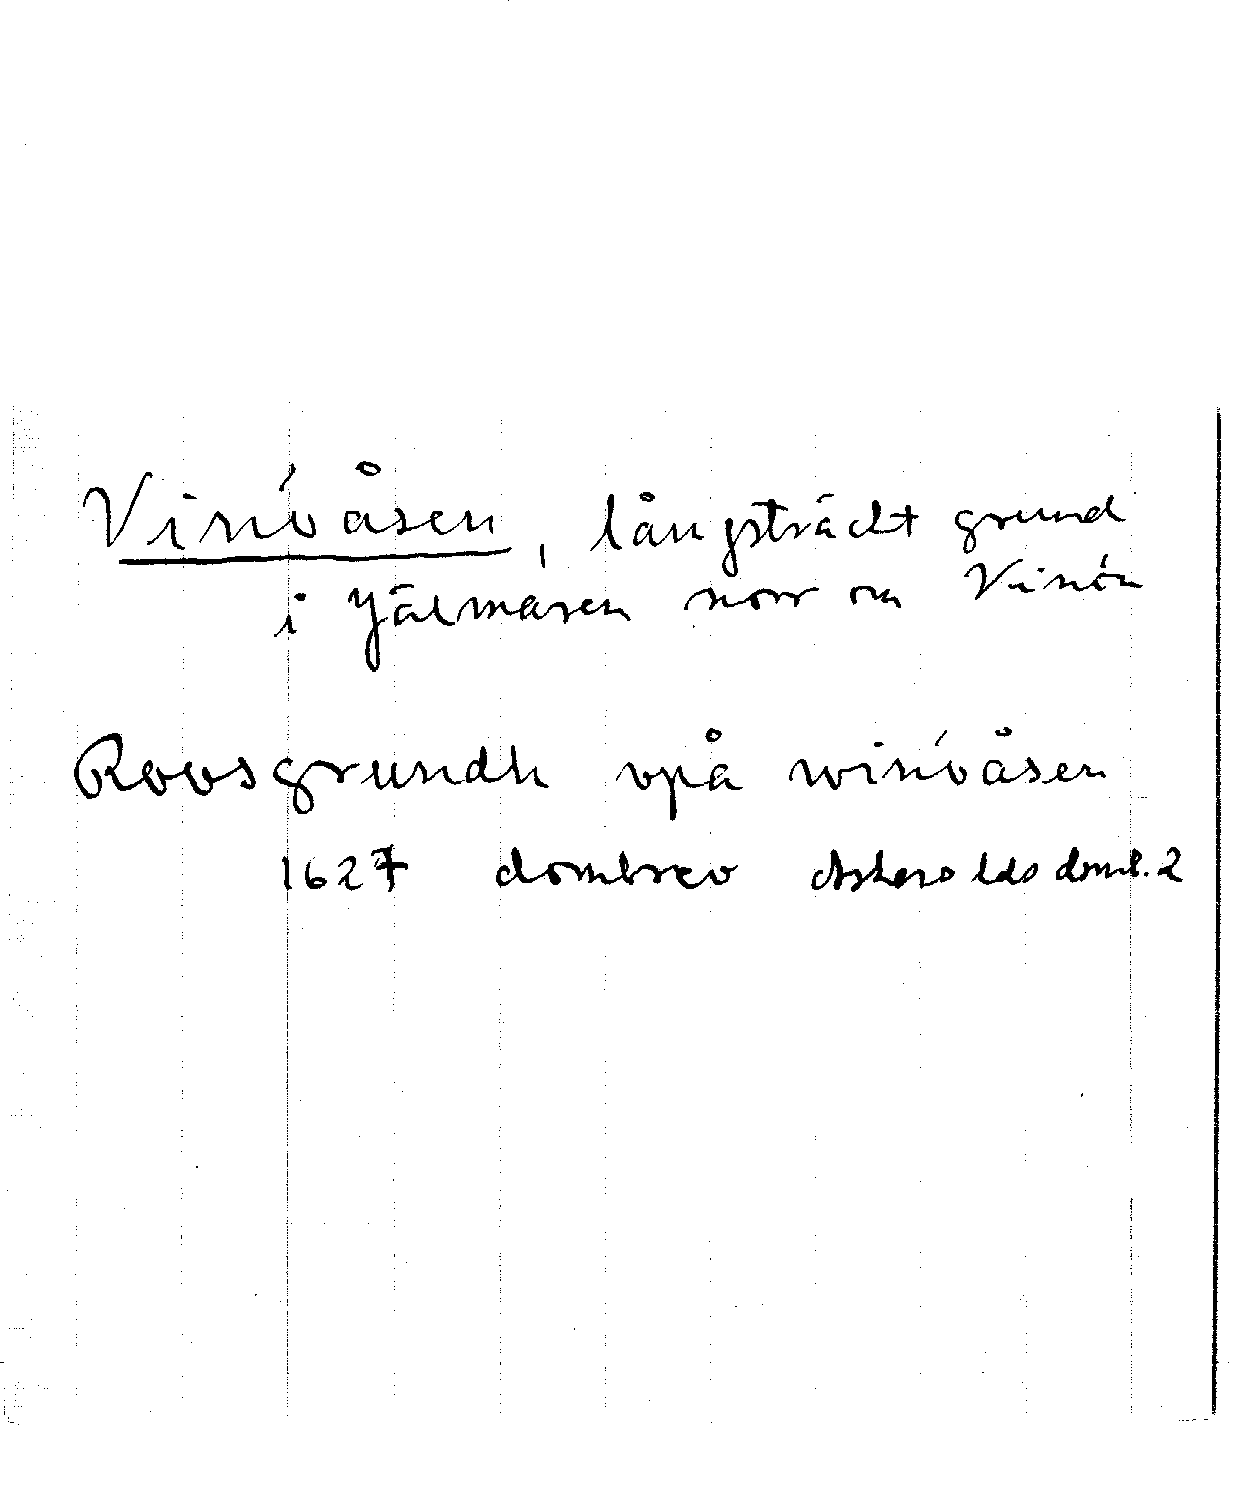 Vinöåsen, långsträckt grund
i Hjälmaren norr om Vinön
Roosgrundh vpå winöåsen
1627 dombrev Askers o Lds domb. 2